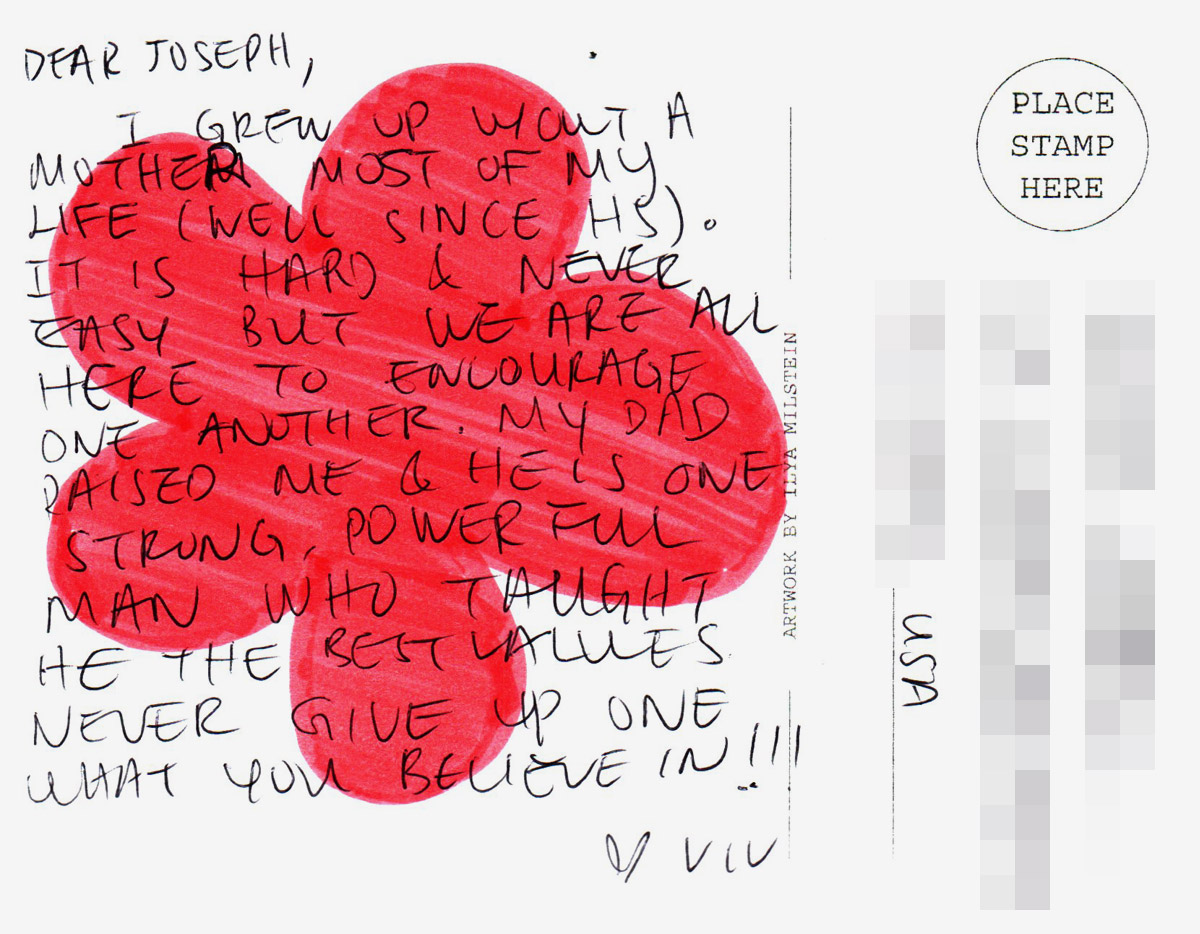 DEAR JOSEPH,
I GREW UP W/OUT A
MOTHER MOST OF MY
LIFE (WELL SINCE HS).
IT IS HARD & NEVER
EASY BUT WE ARE ALL
HERE TO ENCOURAGE
ONE ANOTHER. MY DAD
RAISED ME & HE IS ONE
STRONG, POWERFUL
MAN WHO TAUGHT
ME THE BEST VALUES
NEVER GIVE UP ONE
WHAT YOU BELIEVE IN!!!
♡ VIV
ARTWORK BY ILYA MILSTEIN
PLACE
STAMP
HERE
USA